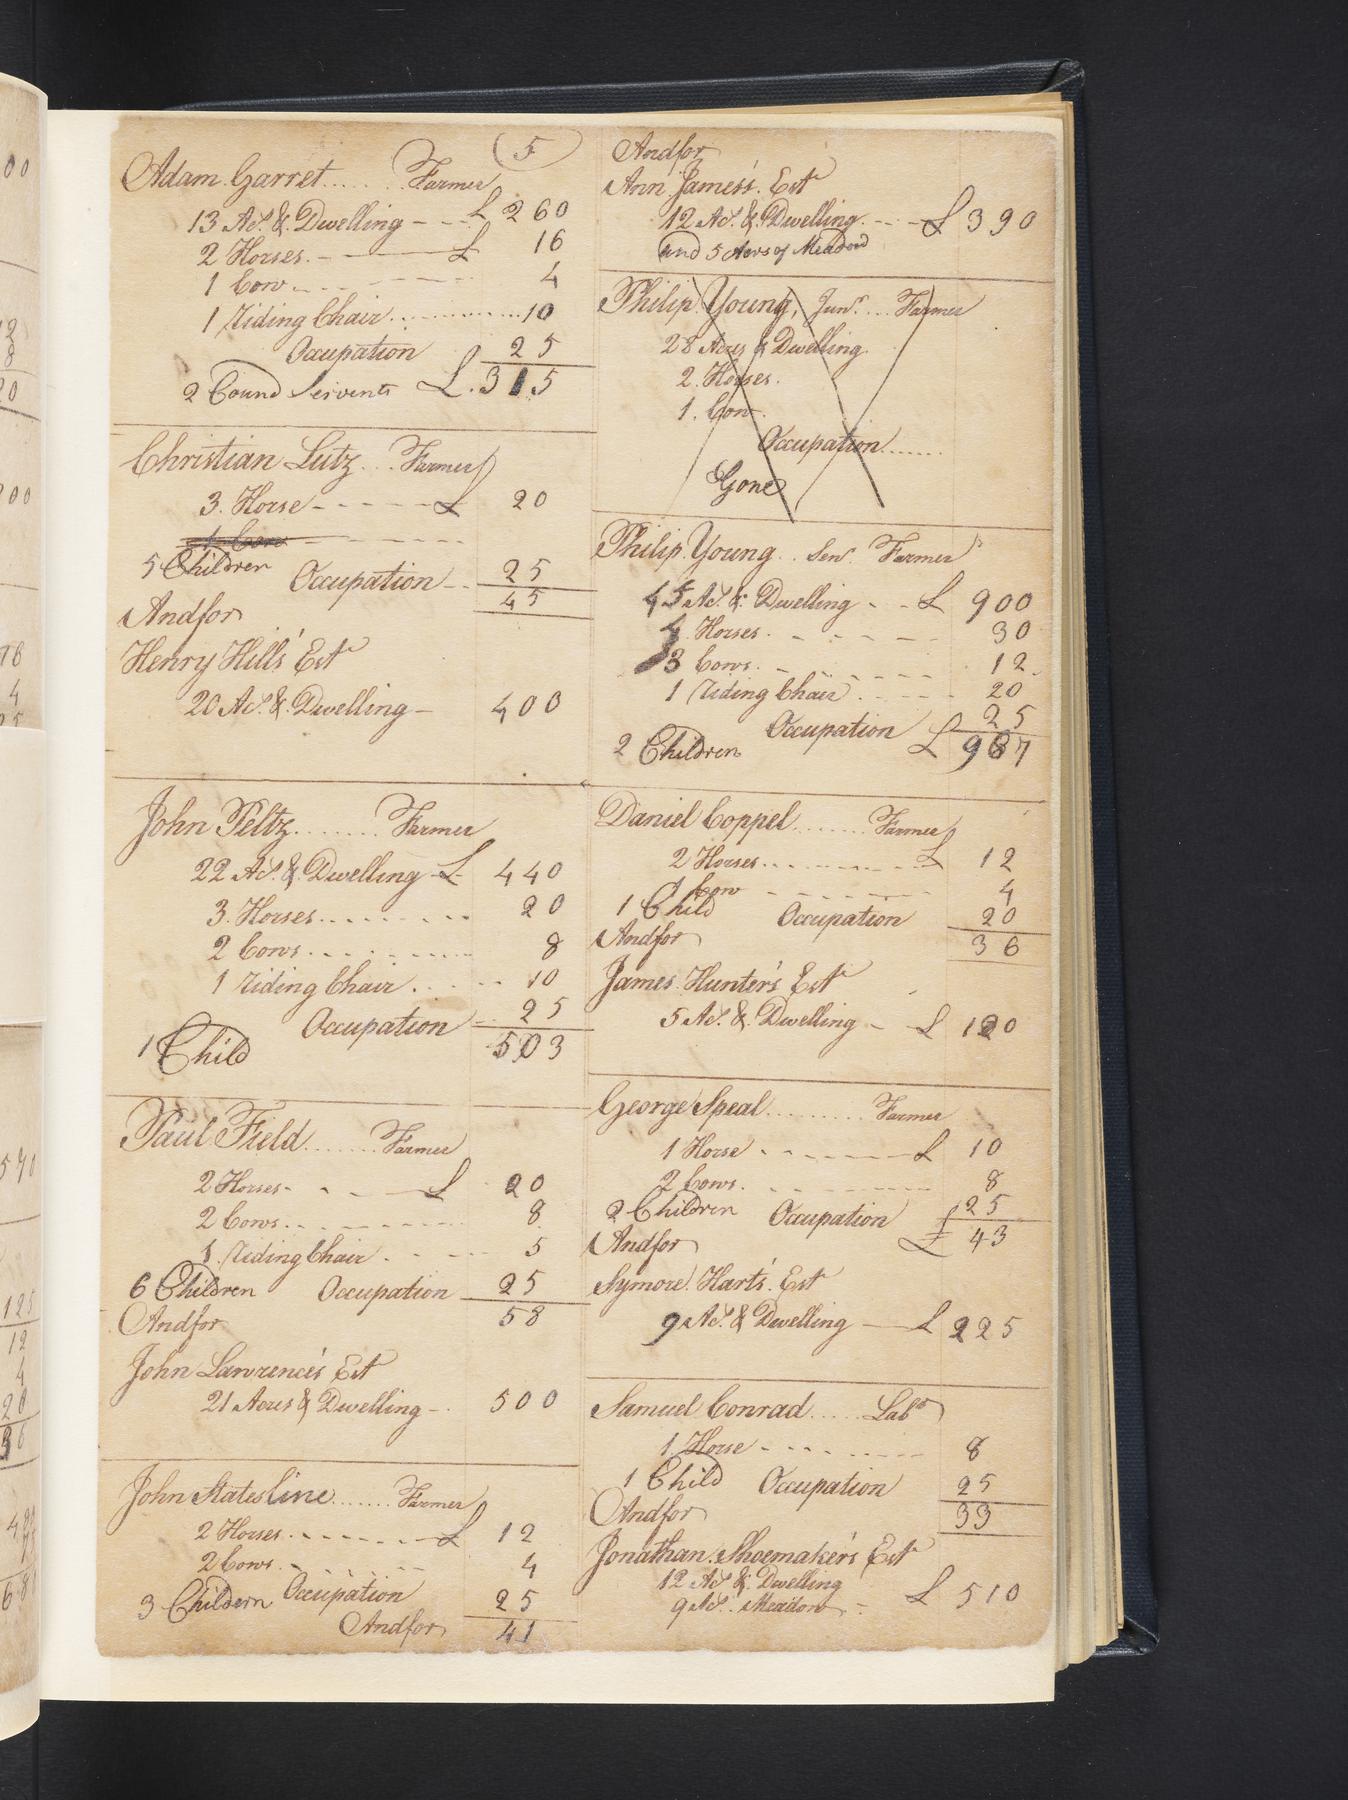 5
Adam Garret ...... Farmer
13 Acs. & Dwelling - - - £ 260
2 Horses. - - £ 16
1 Cow - - - 4
1 Riding Chair ............ 10
Occupation 25
2 Bound Servents £. 315
Christian Lutz ... Farmer
3. Horse - - - - - £ 20
1 Cow - - - -
5 Children Occupation - - 25
45
Andfor
Henry Hill's Est
20 Acs. & Dwelling - 400
John Peltz ........ Farmer
22 Acs. & Dwelling £ 440
3. Horses ........ 20
2 Cows ........ 8
1 Riding Chair ........ 10
Occupation .. 25
1 Child 503
Paul Field ........ Farmer
2 Horses - - - £ 20
2 Cows - - - - 8
1 Riding Chair - - - - 5
6 Children Occupation 25
Andfor 58
John Lawrence's Est
21 Acres & Dwelling - - 500
John Statesline ........ Farmer
2 Horses - - - - - £ 12
2 Cows - - - - 4
3 Childern Occupation 25
Andfor 41
Andfor
Ann James's. Est
12 Acs. & Dwelling - - - £ 390
and 5 Acers of Meadow
Philip Young, Junr. ... Farmer
28 Acres & Dwelling
2. Horses.
1. Cow.
Occupation .......
Gone
Philip Young .. Senr. Farmer
45 Acs. & Dwelling - - £ 900
4 Horses. - - - - 30
3 Cows. - - - - 12
1 Riding Chair - - - - 20
Occupation 25
2 Children £ 987
Daniel Coppel ........ Farmer
2 Horses ........ £ 12
1 Cow - - - - 4
1 Child Occupation 20
Andfor 36
James Hunter's Est
5 Acs. & Dwelling - £ 120
George Speal .......... Farmer
1 Horse - - - - £ 10
2 Cows. - - - - 8
2 Children Occupation 25
Andfor £ 43
Symore Hart's. Est
9 Acs. & Dwelling - £ 225
Samuel Conrad ..... Labr
1 Horse - - - - 8
1 Child Occupation 25
Andfor 33
Jonathan Shoemaker's Est
12 Acs. & Dwelling
9 Acs. Meadow - £ 510